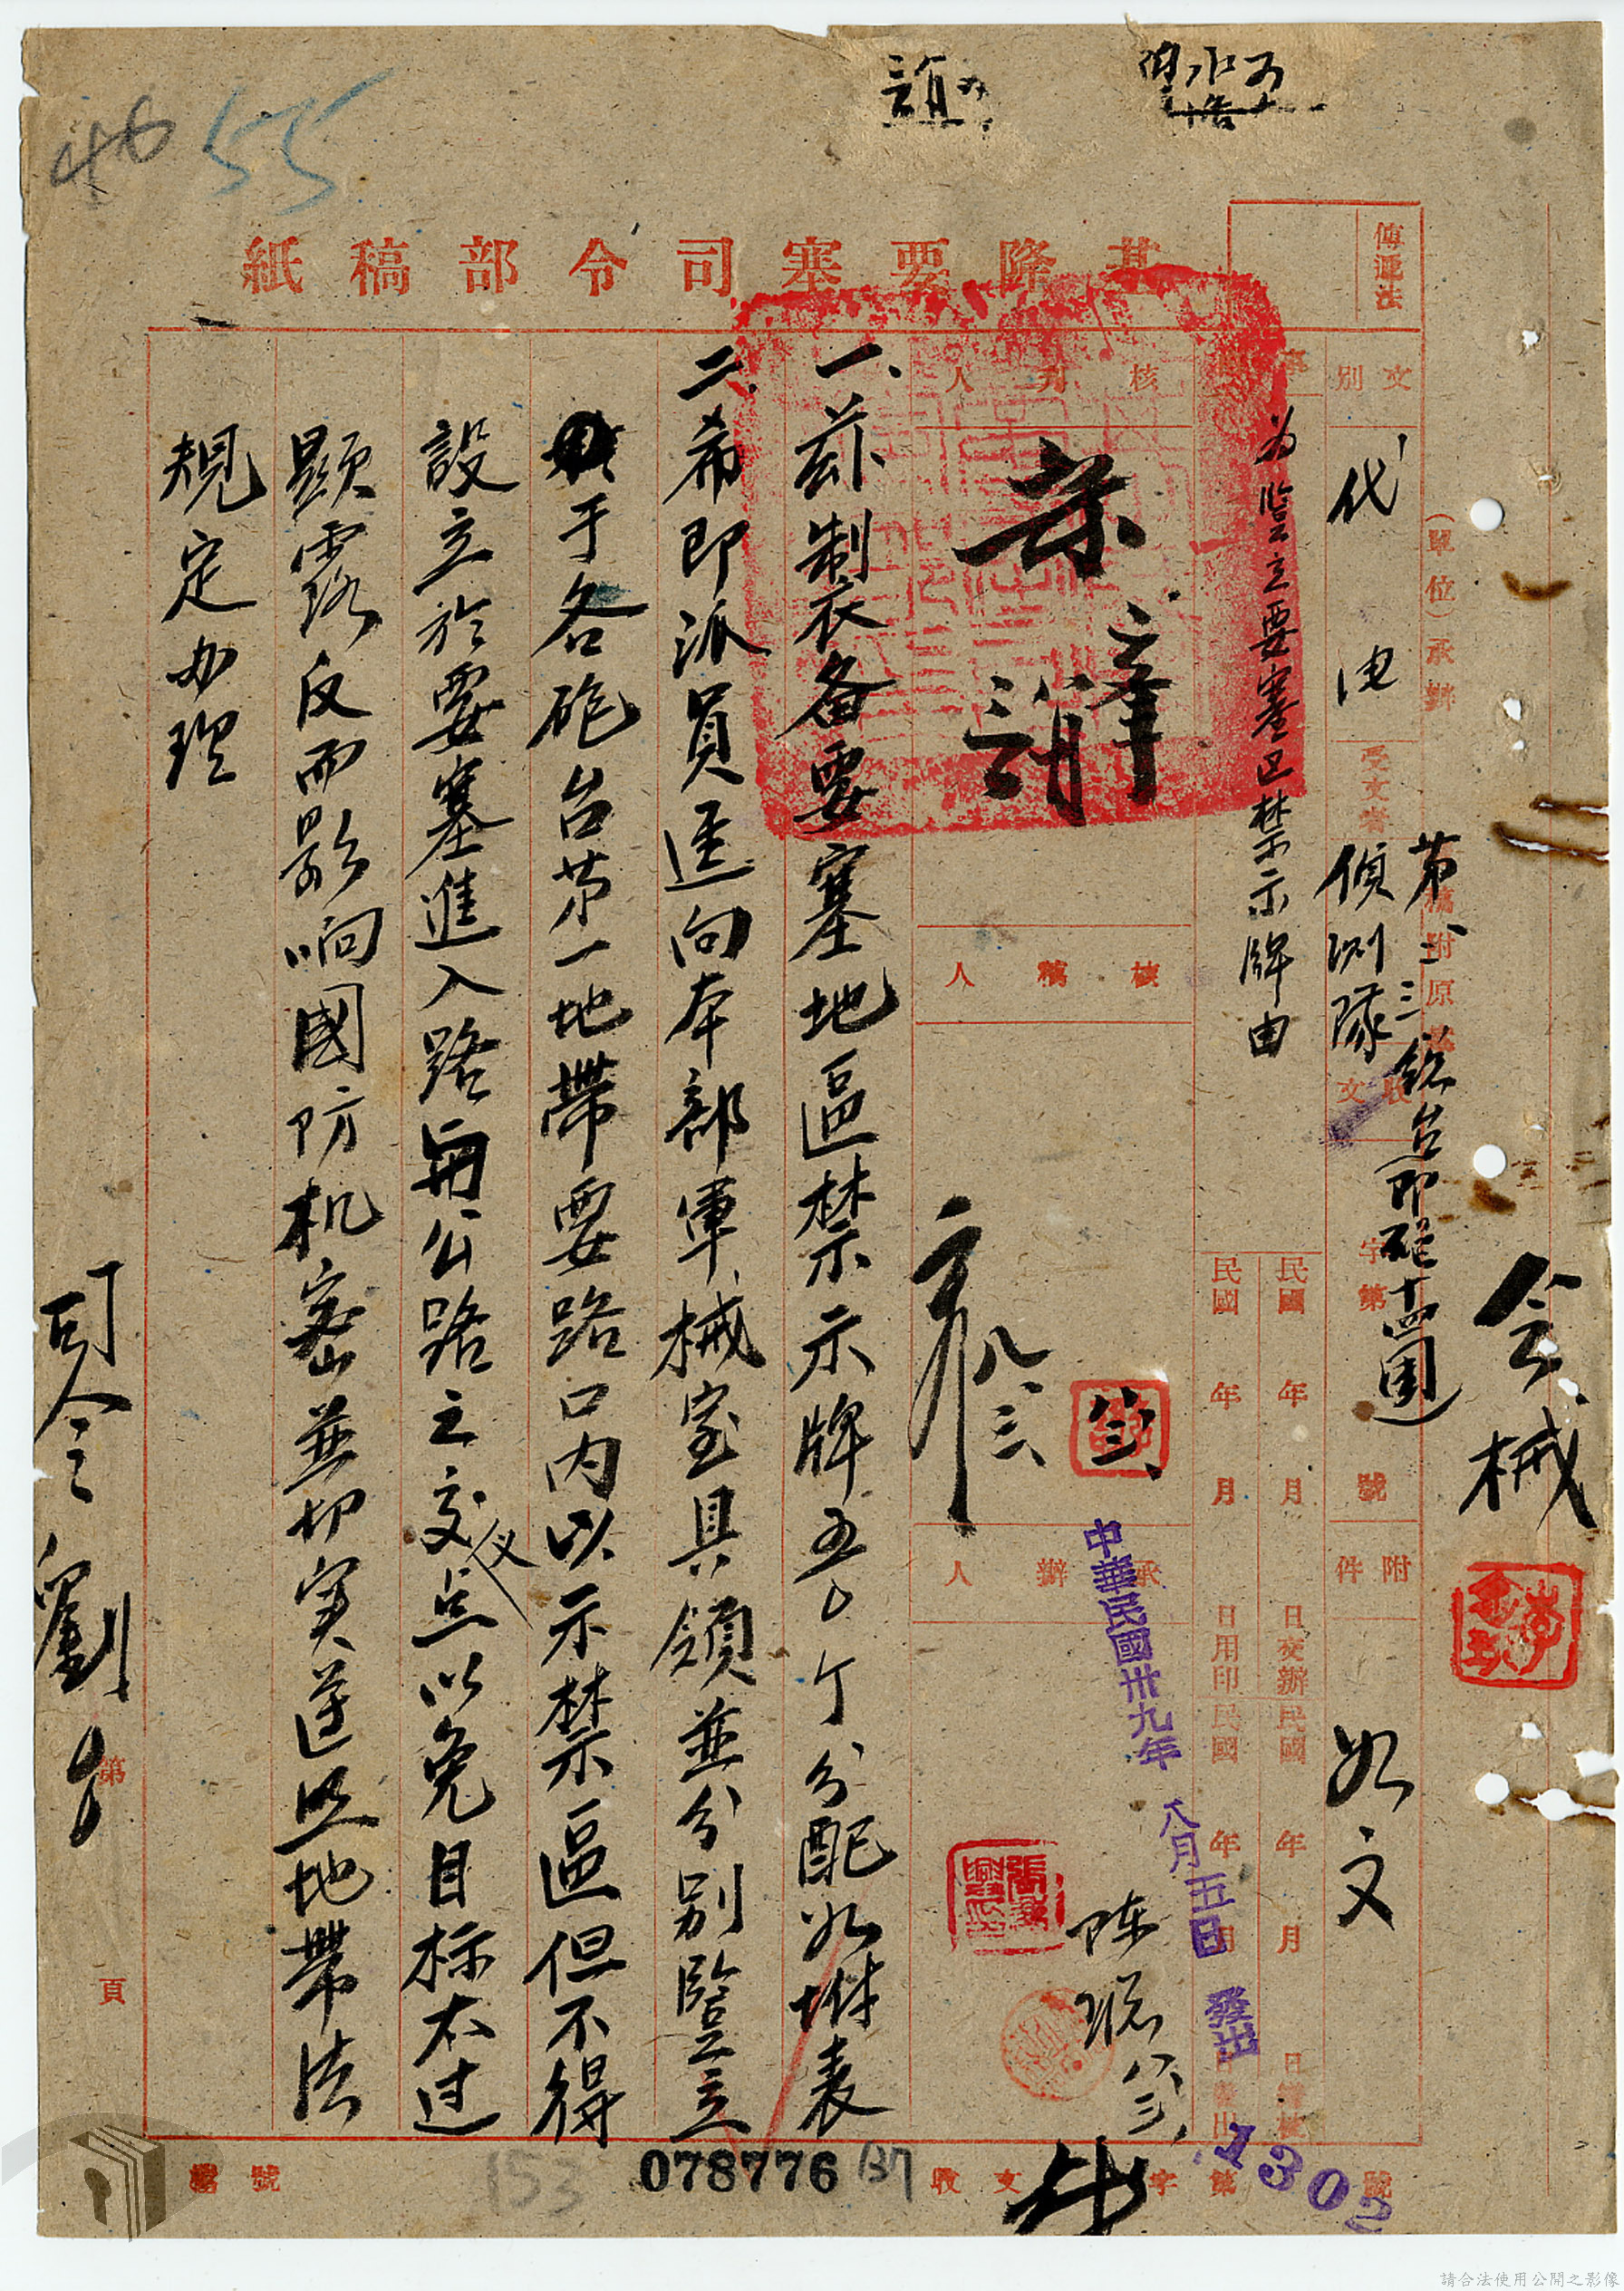 46 55
基隆要塞司令部稿紙
傳遞法
(單位)承辦
稿附原
會械
文別
代電
受文者
第二三總台即砲十四團
偵測隊
收文
字第
號
附件
如文
事由
為豎立要塞區禁示牌由
民國 年 月 日交辦
民國 年 月 日繕校
民國 年 月 日用印
民國 年 月 日發出
中華民國卅九年八月五日發出
核判人
核稿人
八三
承辦人
陈
一、茲制衣备要塞地區禁示牌五〇个分配如附表
二、希即派員逕向本部軍械室具領並分別豎立
于各砲台第一地帶要路口内以示禁區但不得
設立於要塞進入路與公路之交点以免目标太过
顯露反而影响國防机密並切实遵照地帶法
規定办理
司令劉
第 頁
檔號
153
078776
137
收文 字第 1302 號
請合法使用公開之影像